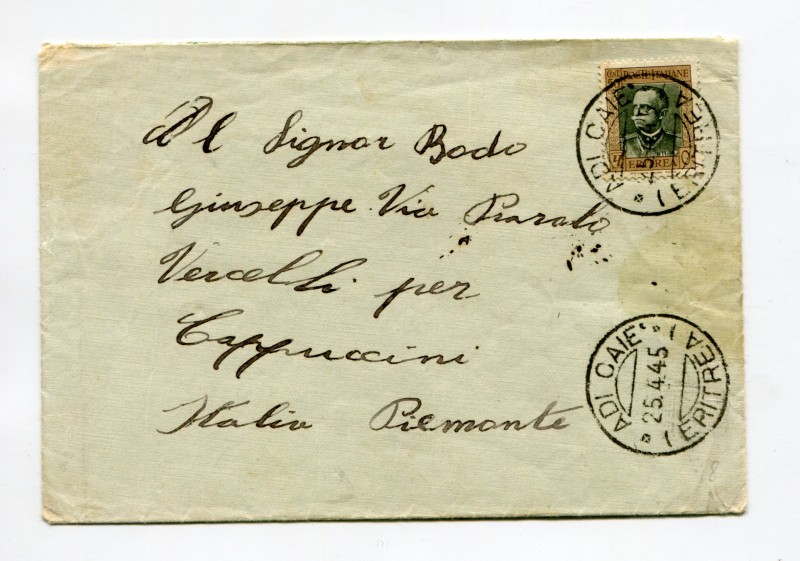 POSTE ITALIANE
ERITREA
ADI CAIE' (ERITREA)
Al Signor Bodo
Giuseppe Via
Vercelli per
Cappuccini
Italia Piemonte
ADI CAIE' (ERITREA)
25.4.45